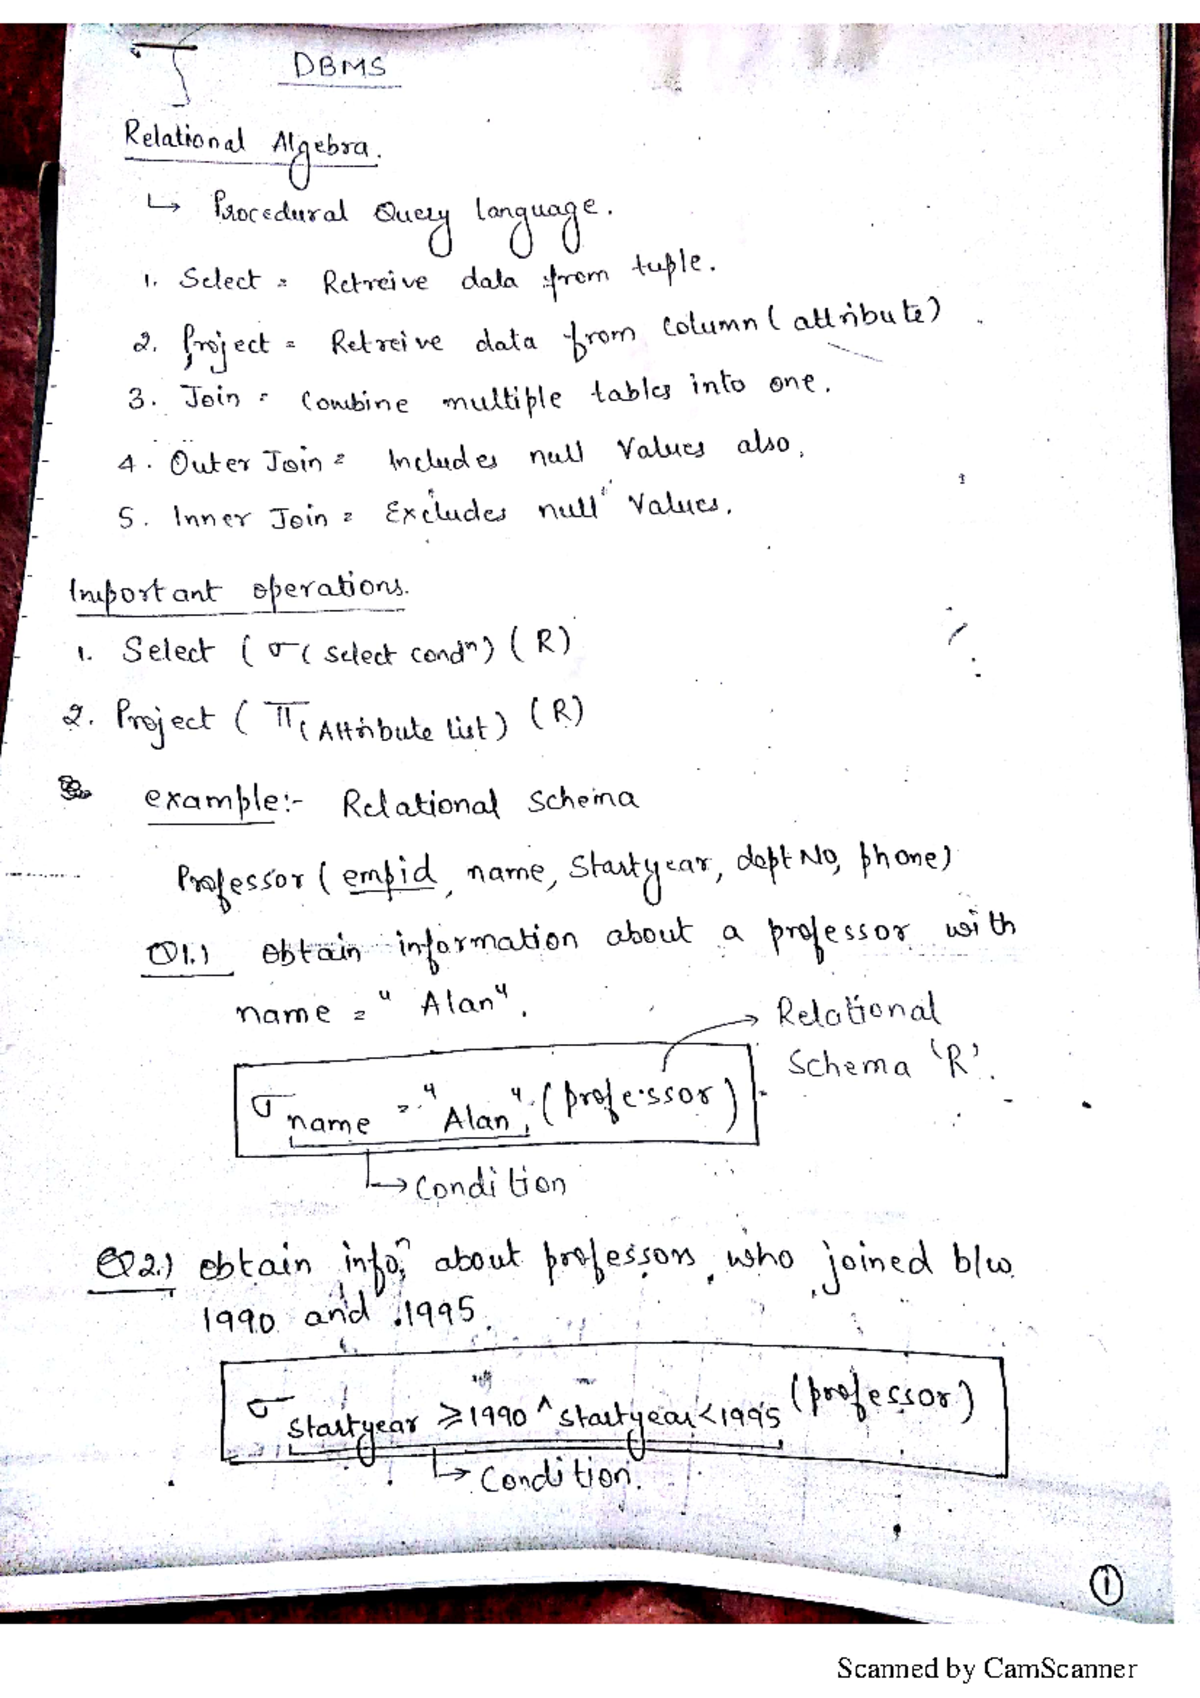 DBMS
Relational Algebra.
↳ Procedural Query language.
1. Select = Retreive data from tuple.
2. Project = Retreive data from column (attribute)
3. Join = Combine multiple tables into one.
4. Outer Join = Includes null Values also.
5. Inner Join = Excludes null Values.
Important operations.
1. Select ( σ ( select condⁿ) ( R )
2. Project ( π ( Attribute list) ( R )
example:- Relational Schema
Professor ( empid, name, Startyear, dept No, phone)
Q1.) Obtain information about a professor with
name = "Alan".
→ Relational
Schema 'R'.
σ name = "Alan" (professor)
↳ Condition
Q2.) Obtain infoⁿ about professors who joined b/w
1990 and 1995.
σ startyear ≥ 1990 ^ startyear < 1995 (professor)
↳ Condition.
1
Scanned by CamScanner